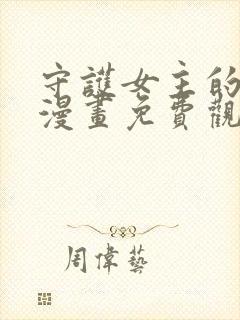 守護女主的
漫畫免費觀
周偉藝